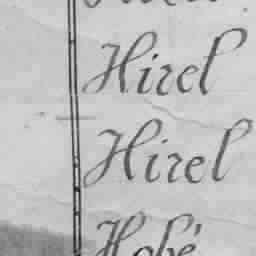 Hirel
Hirel
Hobé